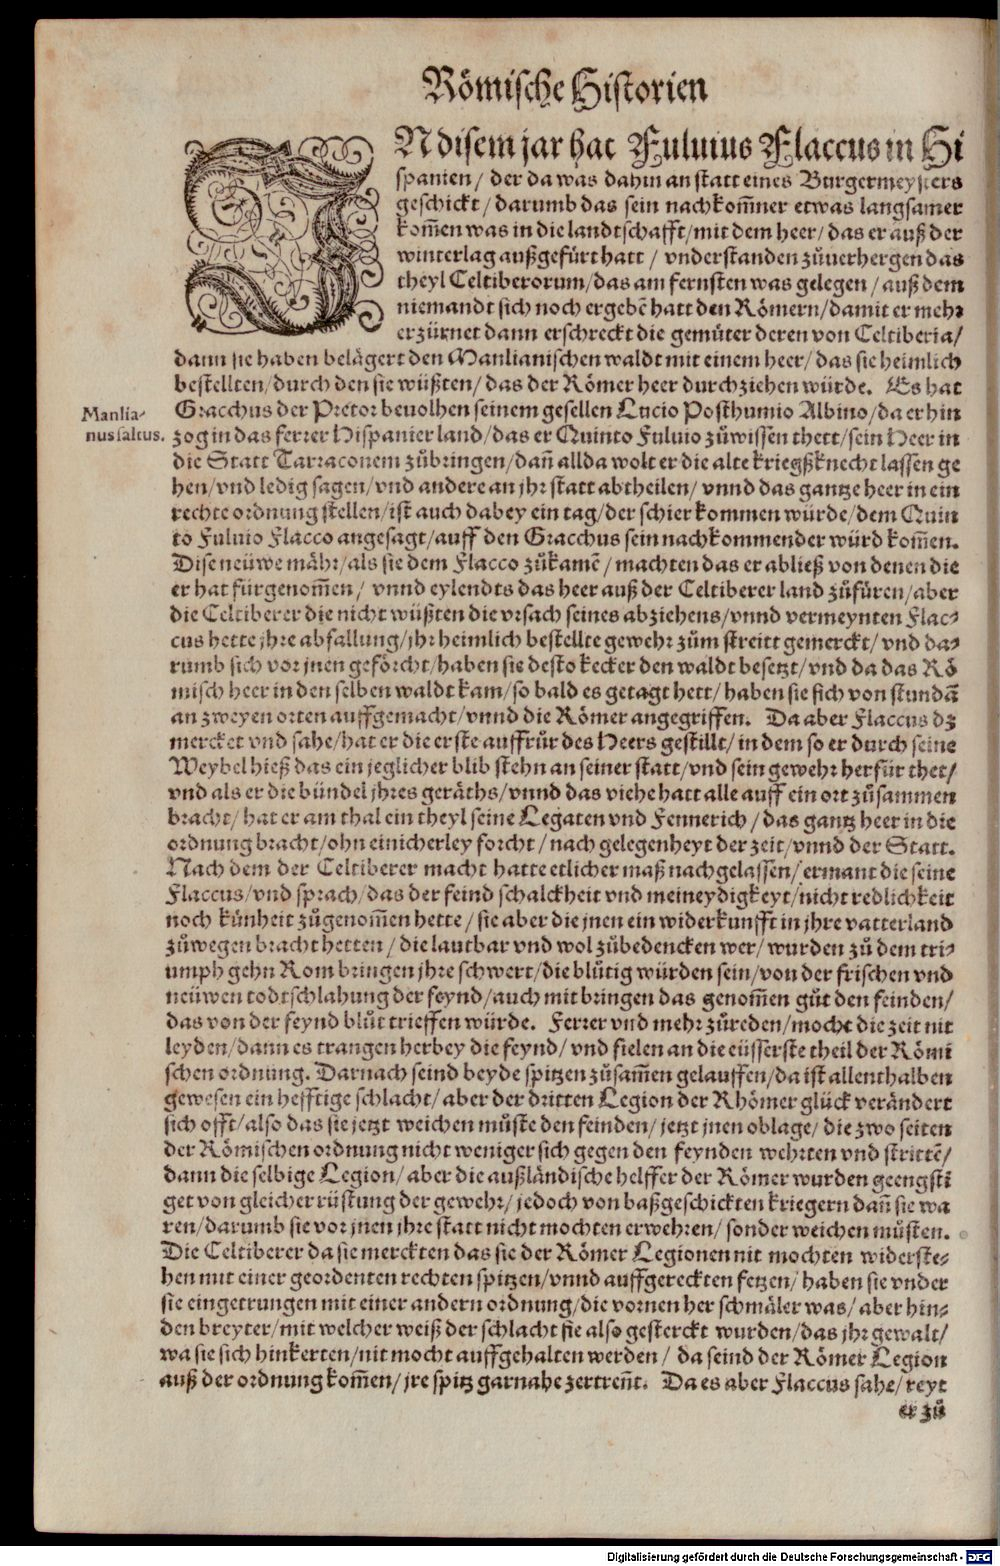 Römische Historien
IN disem jar hat Fuluius Flaccus in Hi
spanien / der da was dahin an statt eines Burgermeysters
geschickt / darumb das sein nachkom̃ner etwas langsamer
kom̃en was in die landtschafft / mit dem heer / das er auß der
winterlag außgefürt hatt / vnderstanden zůuerhergen das
theyl Celtiberorum / das am fernsten was gelegen / auß dem
niemandt sich noch ergebẽ hatt den Römern / damit er mehr
erzürnet dann erschreckt die gemüter deren von Celtiberia /
dann sie haben belägert den Manlianischen waldt mit einem heer / das sie heimlich
bestellten / durch den sie wüßten / das der Römer heer durchziehen würde. Es hat
Manlia-
nus saltus.
Gracchus der Pretor beuolhen seinem gesellen Lucio Posthumio Albino / da er hin
zog in das ferrer Hispanier land / das er Quinto Fuluio zůwissen thett / sein Heer in
die Statt Tarraconem zůbringen / dañ allda wolt er die alte kriegßknecht lassen ge
hen / vnd ledig sagen / vnd andere an jhr statt abtheilen / vnnd das gantze heer in ein
rechte ordnung stellen / ist auch dabey ein tag / der schier kommen würde / dem Quin
to Fuluio Flacco angesagt / auff den Gracchus sein nachkommender würd kom̃en.
Dise neüwe mähr / als sie dem Flacco zůkamẽ / machten das er abließ von denen die
er hat fürgenom̃en / vnnd eylendts das heer auß der Celtiberer land zůfüren / aber
die Celtiberer die nicht wüßten die vrsach seines abziehens / vnnd vermeynten Flac-
cus hette jhre abfallung / jhr heimlich bestellte gewehr zům streitt gemerckt / vnd da-
rumb sich vor jnen geförcht / haben sie desto kecker den waldt besetzt / vnd da das Rö
misch heer in den selben waldt kam / so bald es getagt hett / haben sie sich von stundã
an zweyen orten auffgemacht / vnnd die Römer angegriffen. Da aber Flaccus dz
mercket vnd sahe / hat er die erste auffrůr des Heers gestillt / in dem so er durch seine
Weybel hieß das ein jeglicher blib stehn an seiner statt / vnd sein gewehr herfür thet /
vnd als er die bündel jhres geräths / vnnd das viehe hatt alle auff ein ort zůsammen
bracht / hat er am thal ein theyl seine Legaten vnd Fennerich / das gantz heer in die
ordnung bracht / ohn einicherley forcht / nach gelegenheyt der zeit / vnnd der Statt.
Nach dem der Celtiberer macht hatte etlicher maß nachgelassen / ermant die seine
Flaccus / vnd sprach / das der feind schalckheit vnd meineydigkeyt / nicht redlichkeit
noch künheit zůgenom̃en hette / sie aber die jnen ein widerkunfft in jhre vatterland
zůwegen bracht hetten / die lautbar vnd wol zůbedencken wer / wurden zů dem tri-
umph gehn Rom bringen jhre schwert / die blůtig würden sein / von der frischen vnd
neüwen todtschlahung der feynd / auch mit bringen das genom̃en gůt den feinden /
das von der feynd blůt trieffen würde. Ferrer vnd mehr zůreden / mocht die zeit nit
leyden / dann es trangen herbey die feynd / vnd fielen an die eüsserste theil der Römi
schen ordnung. Darnach seind beyde spitzen zůsam̃en gelauffen / da ist allenthalben
gewesen ein hefftige schlacht / aber der dritten Legion der Rhömer glück verändert
sich offt / also das sie jetzt weichen můste den feinden / jetzt jnen oblage / die zwo seiten
der Römischen ordnung nicht weniger sich gegen den feynden wehrten vnd strittẽ /
dann die selbige Legion / aber die außländische helffer der Römer wurden geengsti
get von gleicher rüstung der gewehr / jedoch von baßgeschickten kriegern dañ sie wa
ren / darumb sie vor jnen jhre statt nicht mochten erwehren / sonder weichen můsten.
Die Celtiberer da sie merckten das sie der Römer Legionen nit mochten widerste-
hen mit einer geordenten rechten spitzen / vnnd auffgereckten fetzen / haben sie vnder
sie eingetrungen mit einer andern ordnung / die vornen her schmäler was / aber hin-
den breyter / mit welcher weiß der schlacht sie also gesterckt wurden / das jhr gewalt /
wa sie sich hinkerten / nit mocht auffgehalten werden / da seind der Römer Legion
auß der ordnung kom̃en / jre spitz gar nahe zertreñt. Da es aber Flaccus sahe / reyt
er zů
Digitalisierung gefördert durch die Deutsche Forschungsgemeinschaft - DFG